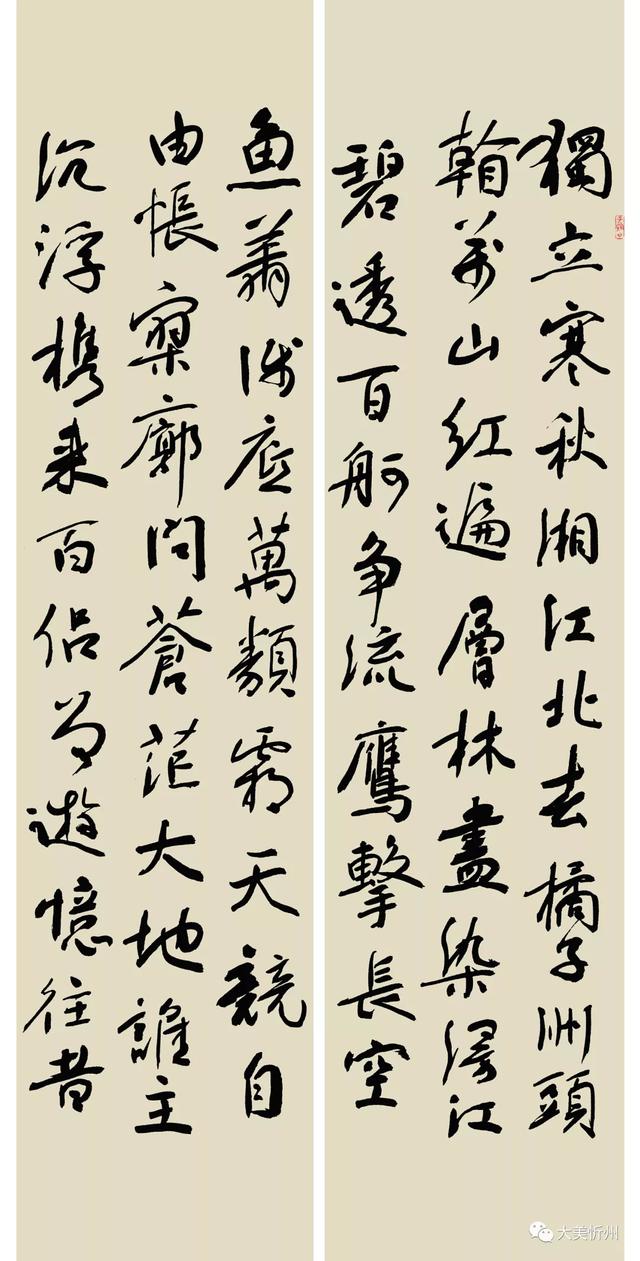 獨立寒秋湘江北去橘子洲頭
翰萬山红遍層林盡染漫江
碧透百舸争流鷹擊長空
魚翔淺底萬類霜天競自
由悵寥廓問蒼茫大地誰主
沉浮携来百侣曾遊憶往昔
大美忻州